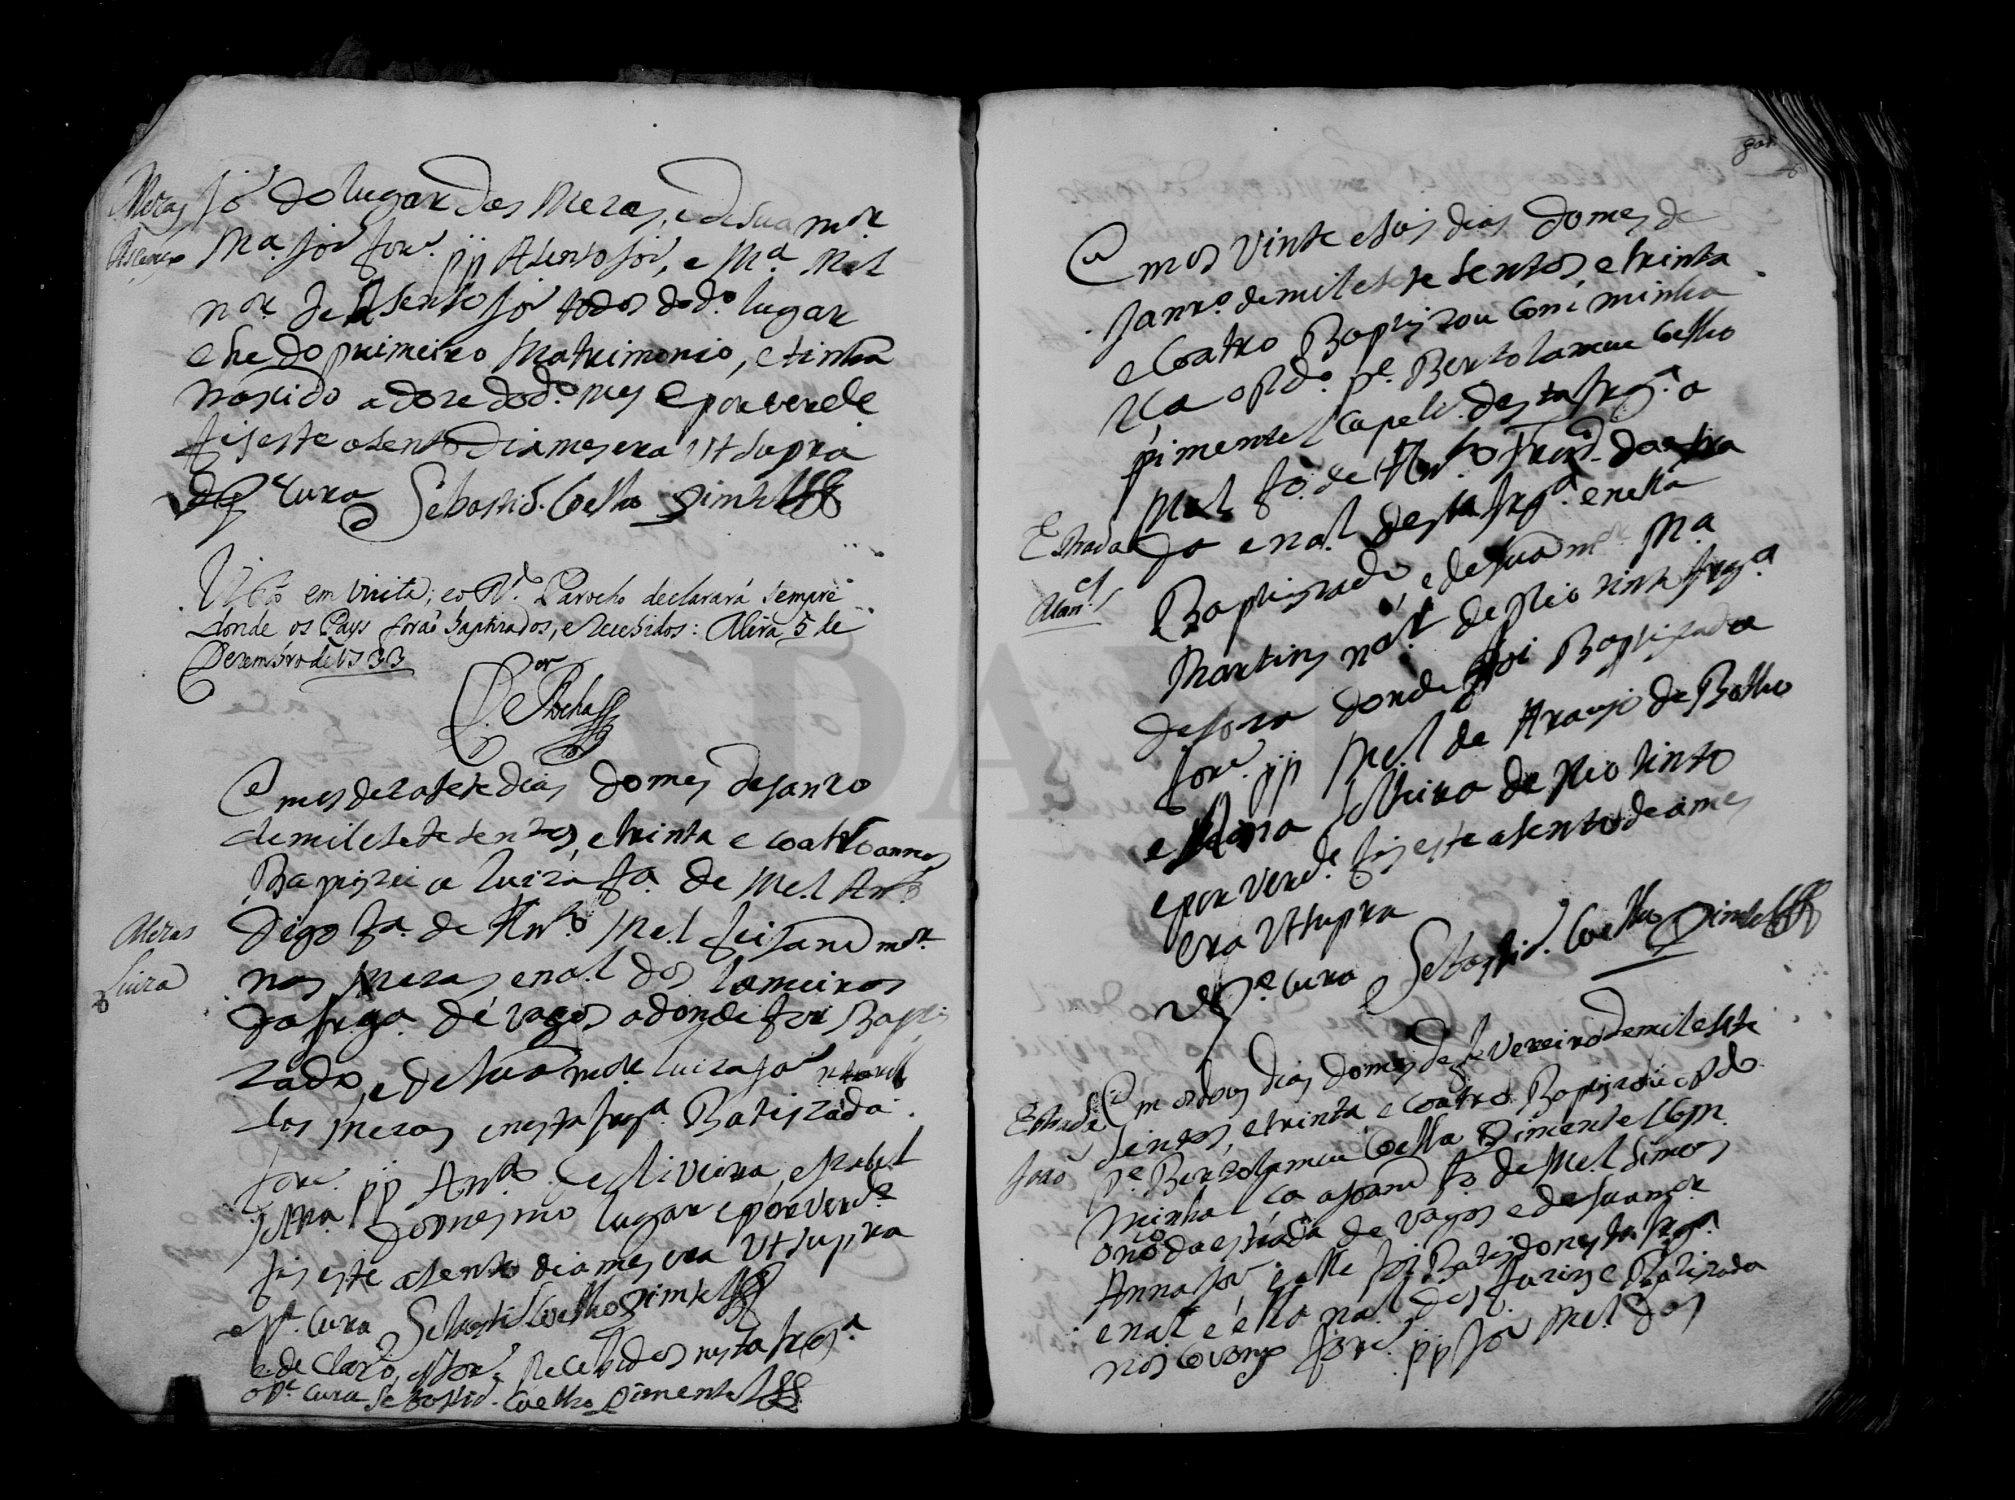 Mezas
Asenso
fo do lugar das Mezas, e de sua mer
Ma. João forã pp Asenso João, e Ma. Mel
mer de Asenso João todos do do. lugar
e he do primeiro Matrimonio, e tinha
nascido a doze do do. mes e por verde
fis este asento dia mes era Vt supra
Cura Sebastiã Coelho Pimtel
Visto em Visita; e o Rdo. Parocho declarará sempre
donde os Pays forão baptizados, e recebidos: Mira 5 de
Dezembro de 1733
Dor
Rocha
Em os dezasete dias do mes de janro
de mil e sete sentos, e trinta e coatro annos
Baptizei a Luiza fa. de Mel Anto
Digo fa. de Anto Mel feijam mer
Mezas
Luiza
nas Mezas e nal dos Lameiros
da frga. de vagos adonde foi Bapti
zado, e de sua mer Luiza João natural
das Mezas e nesta frga Batizada
forã pp Anto de Oliveira, e Izabel
João do mesmo lugar e por verde
fis este asento dia mes era Vt supra
o Pe. Cura Sebastiã Coelho Pimtel
e declaro, forã Recebidos nesta frga
o Pe. Cura Sebastiã. Coelho Pimentel
Em os Vinte e seis dias do mes de
Janro. de mil e sete sentos e trinta
e Coatro Baptizou com minha
lca o Rdo. Pe. Bertolameu Coelho
pimentel Capelã. desta frga. a
Mel fo. de Anto Frco. da estra
Estrada
Manel
da e nal. desta frga. e nella
Baptizado, e de sua mer Ma
Martins nal de Rio tinto frga.
de soza donde foi Baptizada
forã pp Mel de Araujo de Bolho
e Oliveira de Rio tinto
e por verde. fis este asento de a mes
era Vt supra
o Pe. Cura Sebastiã. Coelho Pimtel
Estrada
João
Em os dous dias do mes de fevereiro de mil e sete
sentos, e trinta e Coatro Baptizou o Rdo
Pe. Bertolameu Coelho Pimentel Com
minha lca a João fo de Mel simois
o nó da estrada de vagos e de sua mer
Anna João e elle foi Batizado nesta frga
e nal e ella nal. de e Batizada
nos Covois forã. pp João Mel dos